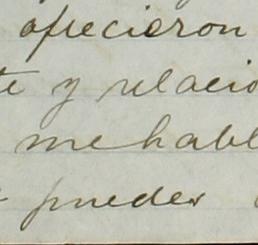 ofrecieron
te y relacio
me habl
puedes